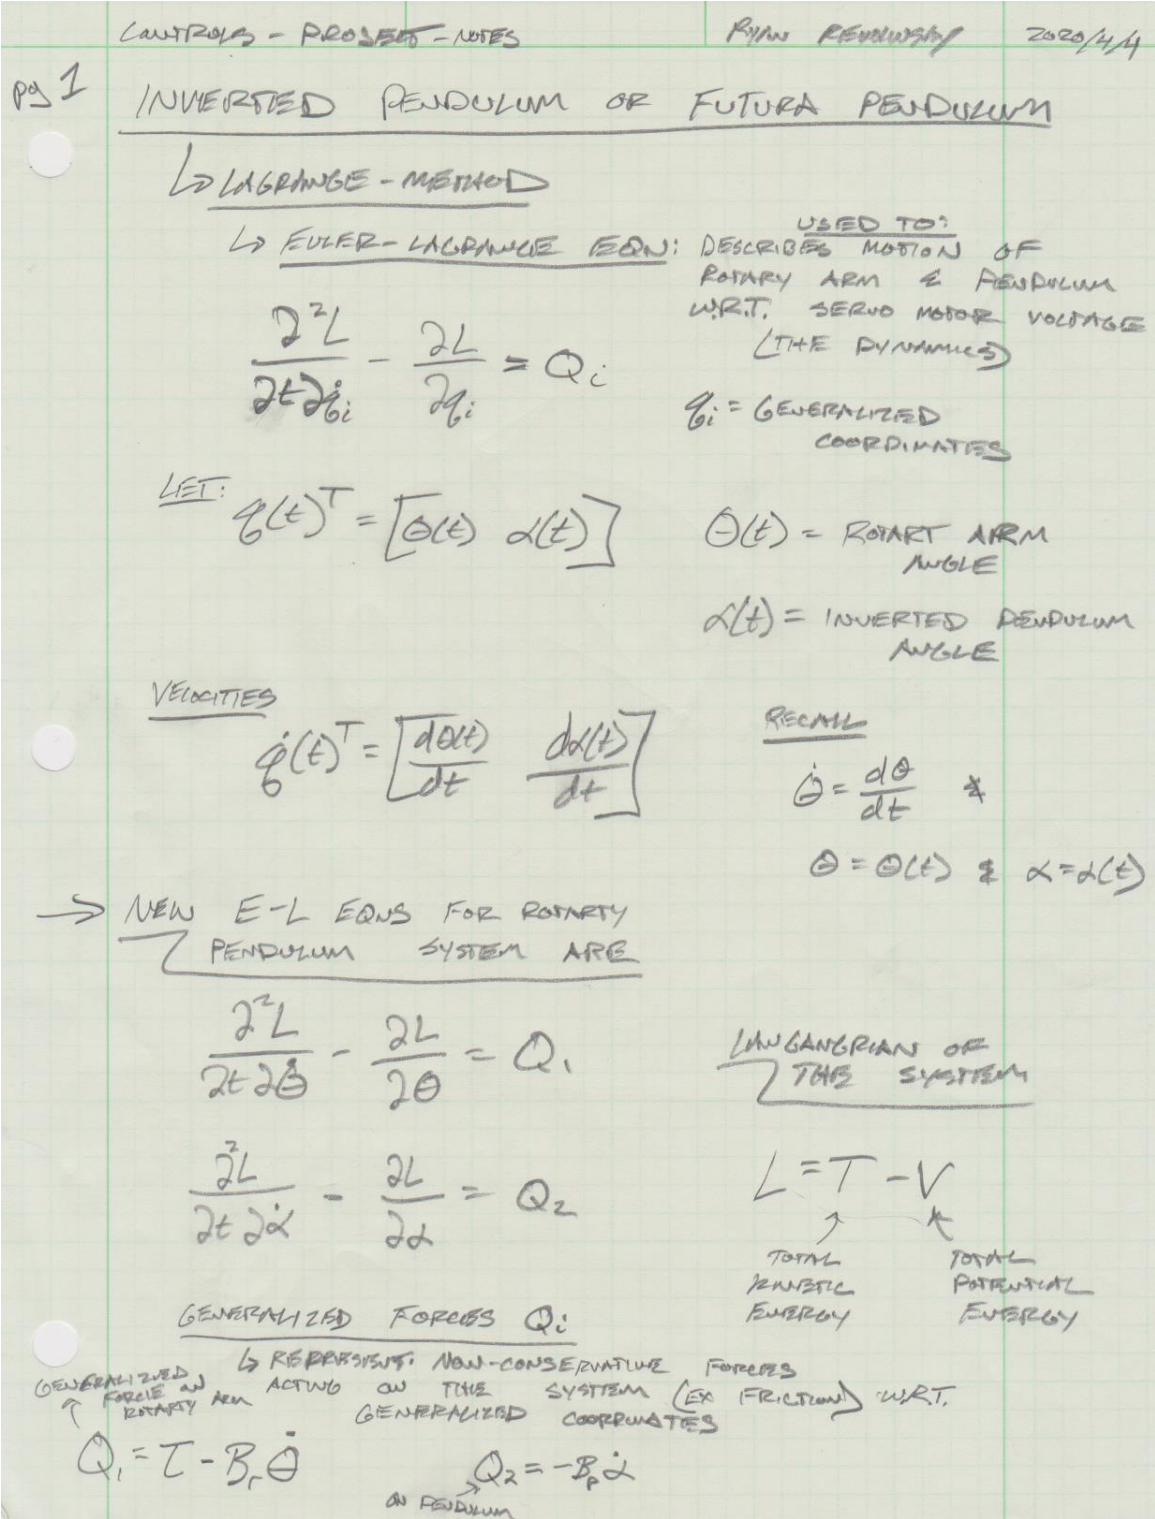 CONTROLS - PROJECT - NOTES RYAN 2020/4/4
pg 1
INVERTED PENDULUM OR FUTURA PENDULUM
↳ LAGRANGE - METHOD
↳ EULER-LAGRANGE EQN:
USED TO:
DESCRIBES MOTION OF
ROTARY ARM & PENDULUM
W.R.T. SERVO MOTOR VOLTAGE
(THE DYNAMICS)
∂²L/∂t∂q̇ᵢ - ∂L/∂qᵢ = Qᵢ
qᵢ = GENERALIZED
COORDINATES
LET: q(t)ᵀ = [θ(t) α(t)]
θ(t) = ROTART ARM
ANGLE
α(t) = INVERTED PENDULUM
ANGLE
VELOCITIES
q̇(t)ᵀ = [dθ(t)/dt dα(t)/dt]
RECALL
θ̇ = dθ/dt &
θ = θ(t) & α = α(t)
→ NEW E-L EQNS FOR ROTARTY
PENDULUM SYSTEM ARE
∂²L/∂t∂θ̇ - ∂L/∂θ = Q₁
∂²L/∂t∂α̇ - ∂L/∂α = Q₂
LANGANGRIAN OF
THE SYSTEM
L = T - V
TOTAL
KINETIC
ENERGY
TOTAL
POTENTIAL
ENERGY
GENERALIZED FORCES Qᵢ
↳ REPRESENT. NON-CONSERVATIVE FORCES
ACTING ON THE SYSTEM (EX FRICTION) W.R.T.
GENERALIZED COORDINATES
GENERALIZED
FORCE ON
ROTARTY ARM
Q₁ = τ - Bᵣθ̇
Q₂ = -Bₚα̇
ON PENDULUM